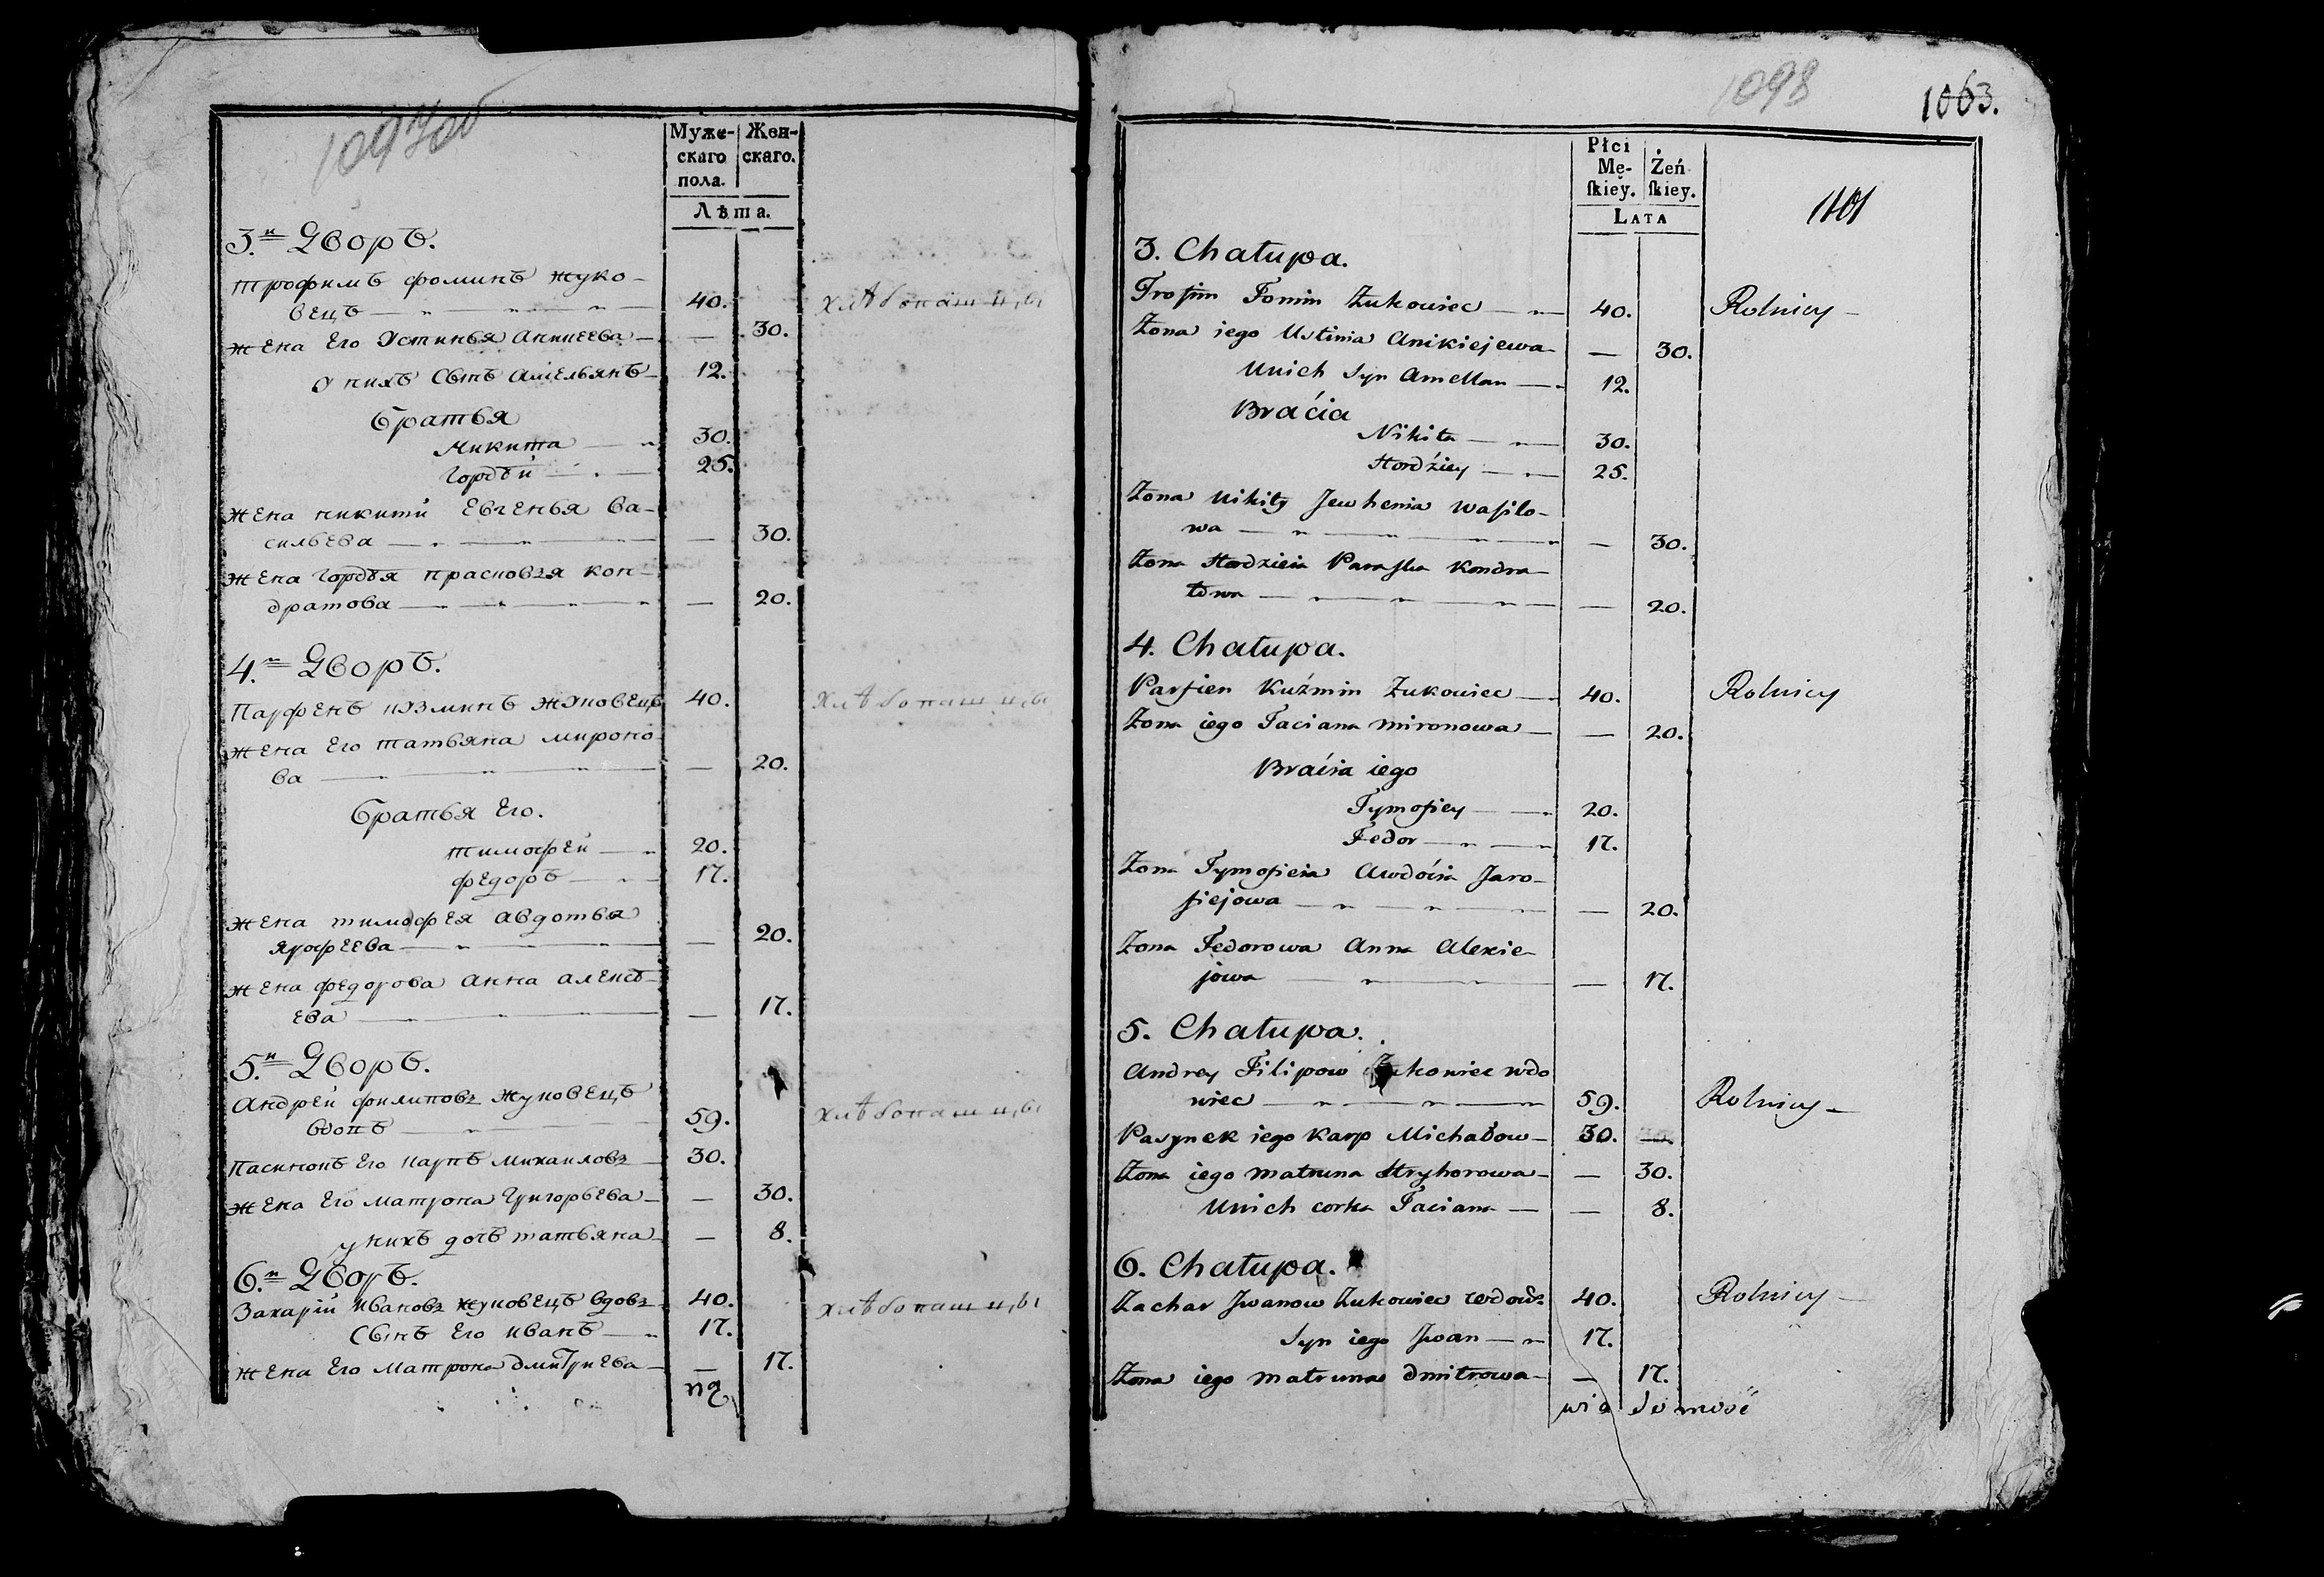 1097об
Муже-
скаго
пола.
Жен-
скаго.
Лѣта.
3.й Дворъ.
Трофимъ Фоминъ Жуко-
вецъ — „ — „ — „ — 40. хлѣбопашцы
жена Его Устинья Аникеева — — 30.
У нихъ Сынъ Амельянъ — 12.
братья
Микита — „ 30.
Гордѣй — „ — 25.
Жена никиты Евгенья Ва-
сильева — „ — „ — — 30.
Жена Гордѣя прасковья кон-
дратова — „ — „ — „ — 20.
4.й Дворъ.
Парфенъ кузминъ жуковецъ 40. хлѣбопашцы
Жена Его татьяна мироно-
ва — „ — „ — — 20.
братья Его.
тимофей — „ 20.
федоръ — „ — 17.
жена тимофея авдотья
ярофеева — „ — „ — — 20.
жена федорова анна алексѣ-
ева — „ — „ — — 17.
5.й Дворъ.
Андрей филиповъ жуковецъ
вдовъ — „ — 59. хлѣбопашцы
Пасинокъ Его карпъ михаиловъ 30.
жена Его матрона Григорьева — — 30.
у нихъ дочь татьяна — — 8.
6.й Дворъ.
Захарій ивановъ жуковецъ вдовъ 40. хлѣбопашцы
Сынъ Его иванъ — „ 17.
жена Его матрона дмитриева — — 17.
1098
1063.
Płci
Mę-
ſkiey.
Żeń
ſkiey.
LATA
1101
3. Chałupa.
Trofim Fomin Żukowiec — „ — 40. Rolnicy —
Żona iego Ustinia Anikiejewa — — 30.
Unich Syn Amellan — „ 12.
Braćia
Nikita — „ — 30.
Hordźiey — „ — 25.
Żona Nikity Jewhenia Waſilo-
wa — „ — „ — „ — „ — 30.
Żona Hordzieia Paraſka Kondra-
towa — „ — „ — „ — — 20.
4. Chałupa.
Parfien Kuźmin Żukowiec — „ 40. Rolnicy
Żona iego Taciana Mironowa — — 20.
Braćia iego
Tymofiey — „ 20.
Fedor — „ — „ 17.
Żona Tymofieia Awdoćia Jaro-
fiejowa — „ — „ — — 20.
Żona Fedorowa Anna Alexie-
jowa — „ — — 17.
5. Chałupa.
Andrey Filipow Żukowiec wdo
wiec — „ — „ — „ — 59. Rolnicy —
Pasynek iego Karp Michałow — 30. —
Żona iego Matruna Hryhorowa — — 30.
Unich corka Taciana — — 8.
6. Chałupa.
Zachar Jwanow Żukowiec wdow: 40. Rolnicy —
Syn iego Jwan — „ 17.
Żona iego Matruna Dmitrowa — — 17.